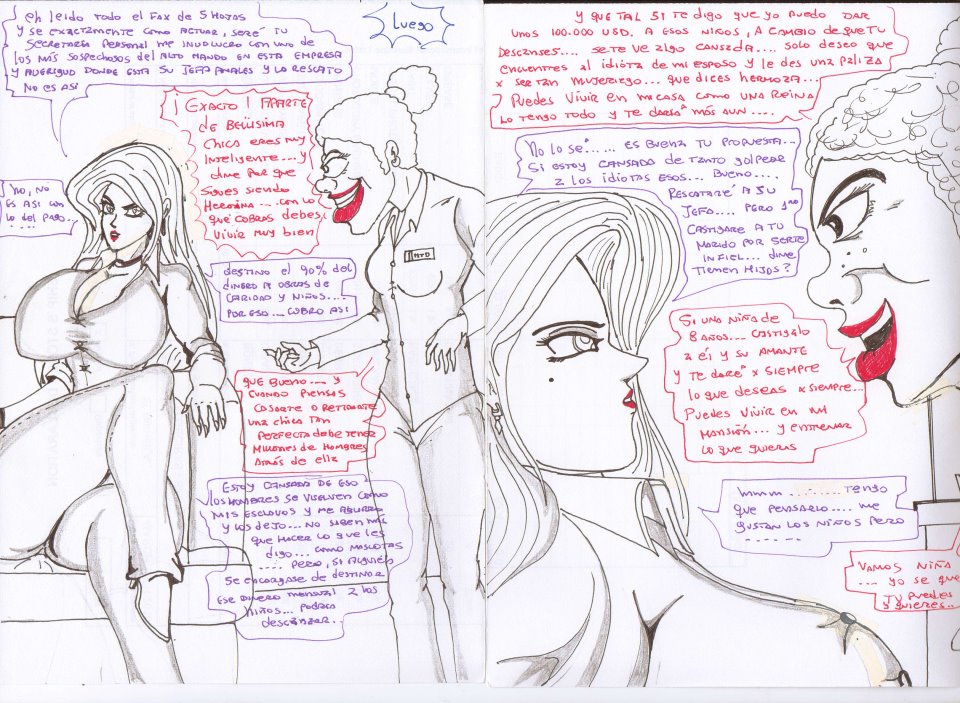 eh leido todo el Fax de 5 Hojas
y se exactamente como actuar, seré tu
Secretaria Personal me involucro con uno de
los más sospechosos del alto mando en esta empresa
y averiguo donde esta su Jefa Amales y lo rescato
No es asi
Luego
¡Exacto! Aparte
de Bellisima
Chica eres muy
inteligente.... y
dime por que
sigues siendo
Heroina.... con lo
que cobras debes
vivir muy bien
no, no
es asi con
lo del pago...
....
HTD
destino el 90% del
dinero a obras de
caridad y niños....
por eso... cobro asi
que bueno.... y
cuando piensas
casarte o retirarte
una chica tan
perfecta debe tener
millones de hombres
atrás de ella
Estoy cansada de eso
los hombres se vuelven como
mis esclavos y me aburro
y los dejo.... no saben más
que hacer lo que les
digo.... como mascotas
..... pero, si alguien
se encargase de destinar
ese dinero mensual a los
niños.... podria
descansar..
y que tal si te digo que yo puedo dar
unos 100.000 USD. a esos niños, a cambio de que tu
descanses.... se te ve algo cansada.... solo deseo que
encuentres al idiota de mi esposo y le des una paliza
x ser tan mujeriego... que dices hermoza...
Puedes vivir en mi casa como una reina
lo tengo todo y te daria más aun....
No lo se..... es buena tu propuesta...
Si estoy cansada de tanto golpear
a los idiotas esos... Bueno....
Rescataré a su
Jefa.... pero 1ro
castigare a tu
marido por serte
infiel... dime
tienen hijos?
Si una niña de
8 años.... castigalo
a él y su amante
y te daré x siempre
lo que deseas x siempre...
Puedes vivir en mi
mansión.... y entrenar
lo que quieras
mmm ........ tengo
que pensarlo.... me
gustan los niños pero
......
Vamos niña
.... yo se que
tu puedes
y quieres..